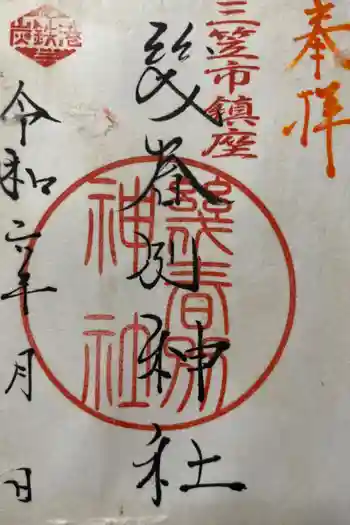 奉拝
三笠市鎮座
幾春別神社
幾春別
神社
令和六年 月 日
炭鉄港